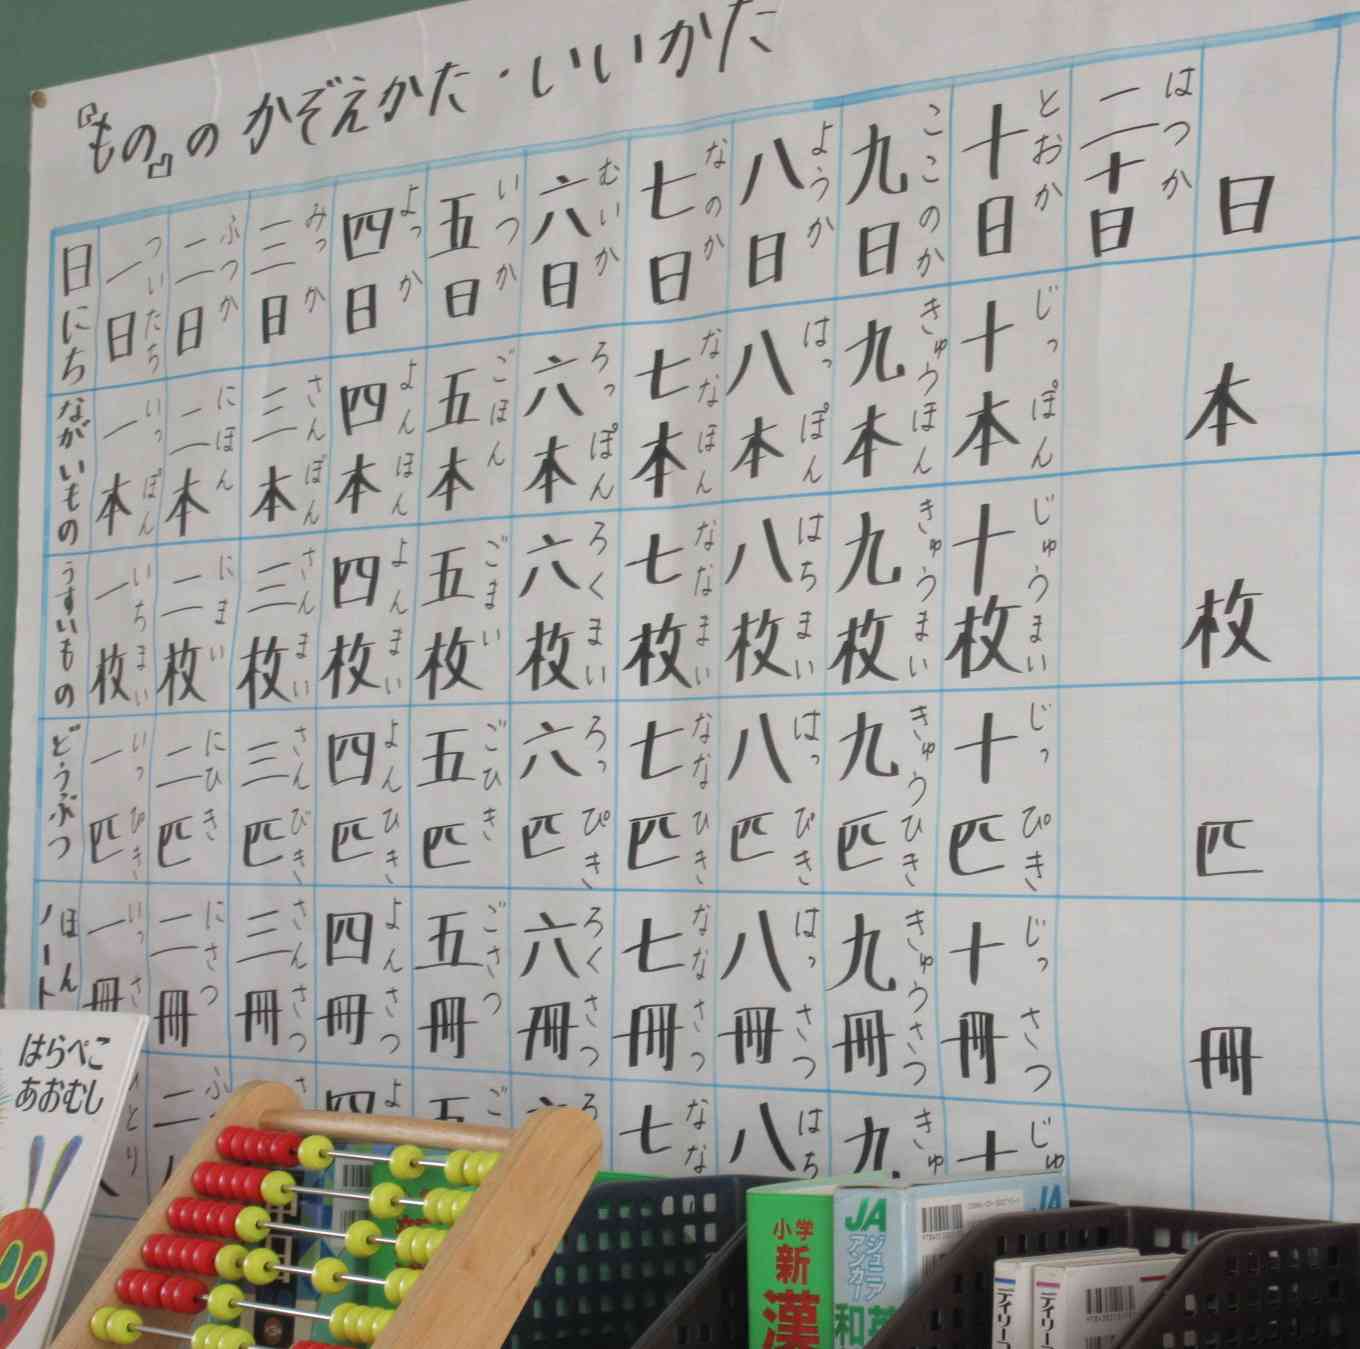 『もの』の かぞえかた・いいかた
日にち
一日 ついたち
二日 ふつか
三日 みっか
四日 よっか
五日 いつか
六日 むいか
七日 なのか
八日 ようか
九日 ここのか
十日 とおか
二十日 はつか
日
ながいもの
一本 いっぽん
二本 にほん
三本 さんぼん
四本 よんほん
五本 ごほん
六本 ろっぽん
七本 ななほん
八本 はっぽん
九本 きゅうほん
十本 じっぽん
本
うすいもの
一枚 いちまい
二枚 にまい
三枚 さんまい
四枚 よんまい
五枚 ごまい
六枚 ろくまい
七枚 ななまい
八枚 はちまい
九枚 きゅうまい
十枚 じゅうまい
枚
どうぶつ
一匹 いっぴき
二匹 にひき
三匹 さんびき
四匹 よんひき
五匹 ごひき
六匹 ろっぴき
七匹 ななひき
八匹 はっぴき
九匹 きゅうひき
十匹 じっぴき
匹
ほん
ノート
一冊 いっさ
二冊 にさつ
三冊 さんさつ
四冊 よんさつ
五冊 ごさつ
六冊 ろくさつ
七冊 ななさつ
八冊 はっさつ
九冊 きゅうさつ
十冊 じっさつ
冊
とり
二 ふ
さ
四 よ
五 ご
六 ろ
七 なな
八 はち
九 きゅ
十 じゅ
はらぺこ
あおむし
小学
新
漢
JA
ジュニア
アンカー
和英
JA